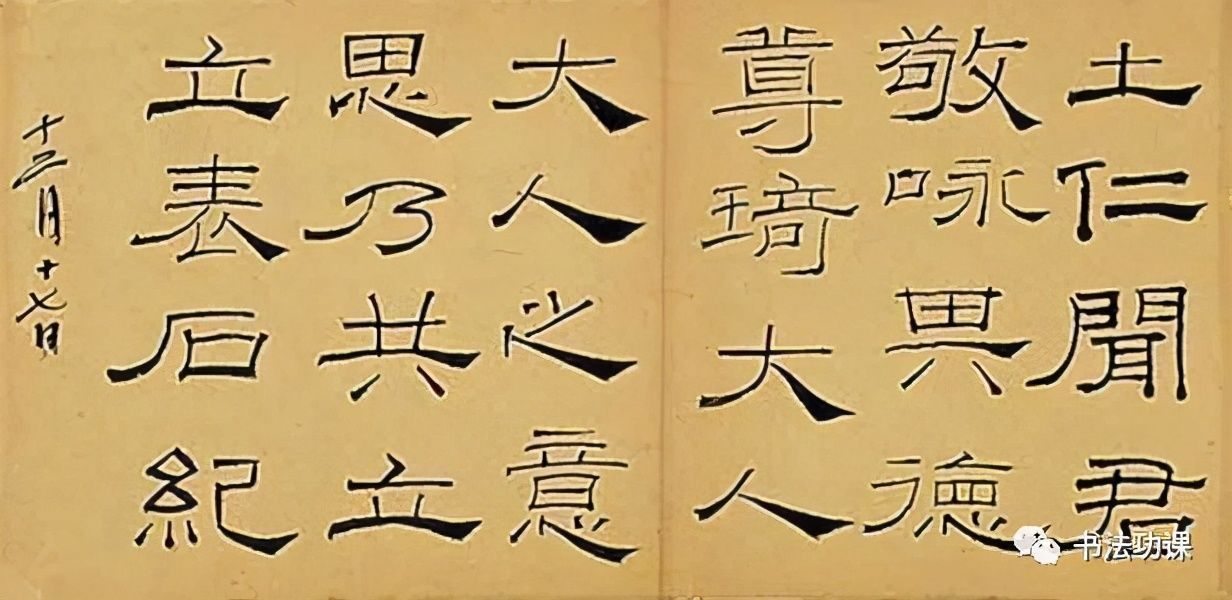 土仁聞君
敬咏其德
尊琦大人
大人之意
思乃共立
立表石紀
十二月十七日
书法功课